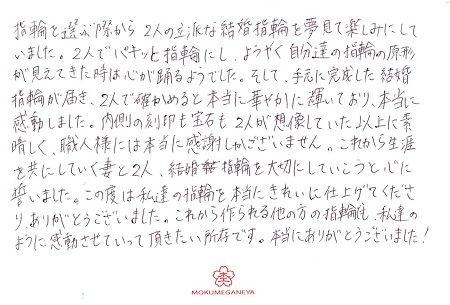 指輪を選ぶ際から2人の立派な結婚指輪を夢見て楽しみにして
いました。2人でパキッと指輪にし、ようやく自分達の指輪の原形
が見えてきた時は心が踊るようでした。そして、手元に完成した結婚
指輪が届き、2人で確かめると本当に華やかに輝いており、本当に
感動しました。内側の刻印も宝石も2人が想像していた以上に素
晴しく、職人様には本当に感謝しかございません。これから生涯
を共にしていく妻と2人、結婚指輪を大切にしていこうと心に
誓いました。この度は私達の指輪を本当にきれいに仕上げてくださ
り、ありがとうございました。これから作られる他の方の指輪も、私達の
ように感動させていって頂きたい所存です。本当にありがとうございました!
MOKUMEGANEYA